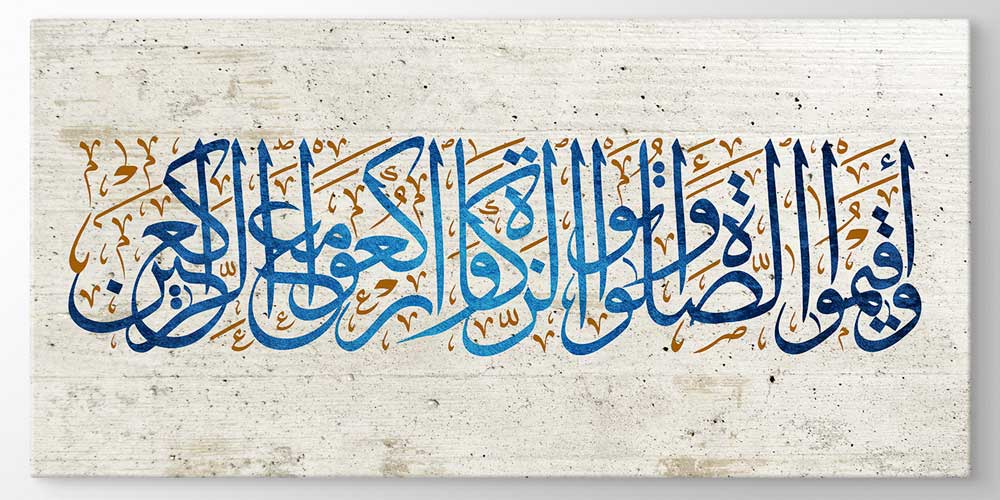 وأقيموا الصلوة وآتوا الزكوة واركعوا مع الراكعين